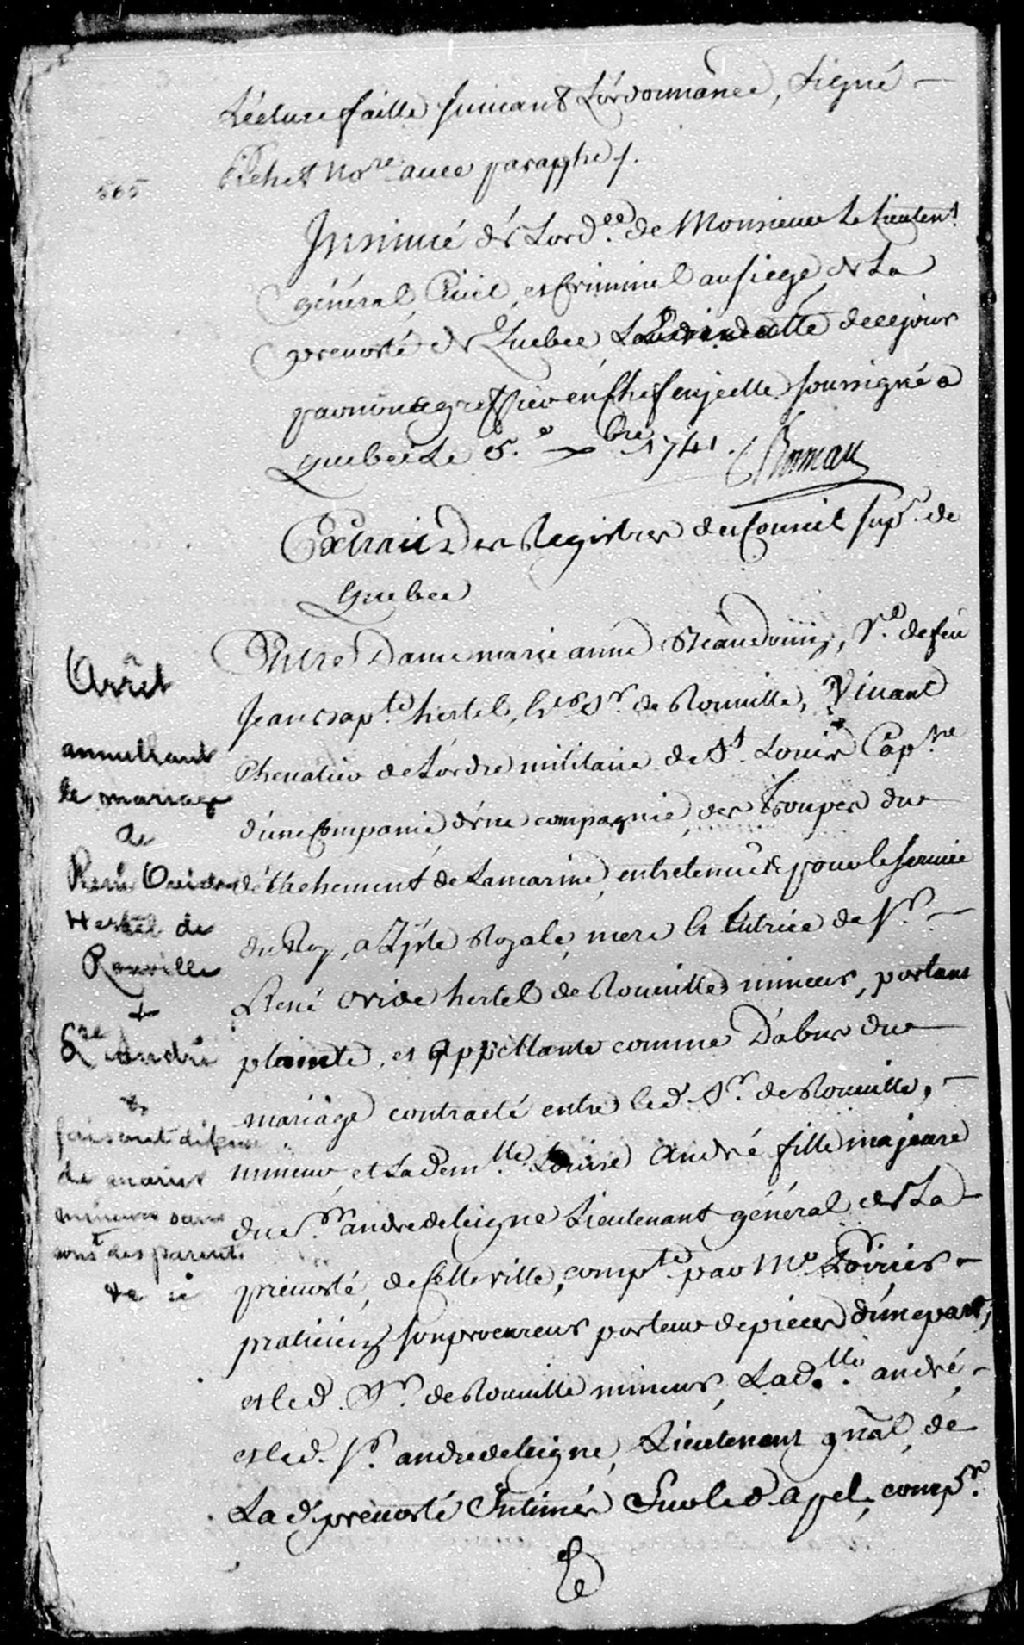 Lecture faitte suivant L'ordonnance, Signé
Pichet No.re avec paraphe /.
565
Insinué de Lord.ce de Monsieur Le Lieuten.t
général Civil et Criminel au siege de La
prevosté de Quebec, L'audience de cejour
par nous greffier en Chef en jcelle soussigné a
Quebec le 5.e xbre 1741. Boisseau
Extrait Des Registres du Conseil Sup.r de
Quebec
Entre Dame marie anne Beaudouin, V.e de feu
Jean bap.te hertel, Es S.r de Rouville, Vivant
Chevalier de Lordre militaire de St Louis Cap.ne
d'une Compagnie des Troupes du
détachement de Lamarine, entretenües pour le service
du Roy, a Lisle Royale, mere et tutrice de S.r
René Ovide hertel de Rouville mineur, portant
plainte, et Appellante comme D'abus du
mariage contracté entre led. S.r de Rouville,
mineur, et La Dem.lle Louise André fille majeure
du S.r andre deleigne Lieutenant général de La
prevosté, de Cette ville, comp.te par Me Poirier
praticien son procureur porteur de pieces d'une part,
et led. S.r de Rouville mineur, Lad.lle andré
et led. S.r andre deleigne, Lieutenant gñal, de
La d. prevosté Intimés Sur led. apel, comp.r
Et
Arrêt
annullant
le mariage
de
René Ovide
Hertel de
Rouville
+
Dlle André
&
faisant défense
de marier
mineurs sans
cons.t des parents